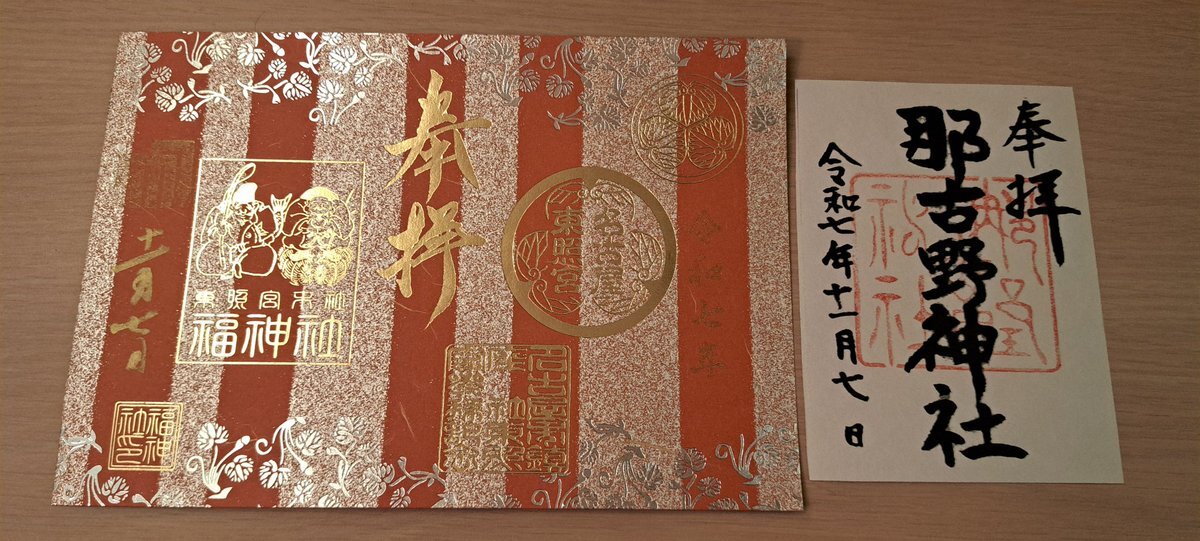 令和七年
名古屋
東照宮
奉拝
東照宮末社
福神社
十一月七日
福神
社印
奉拝
那古野神社
令和七年十一月七日